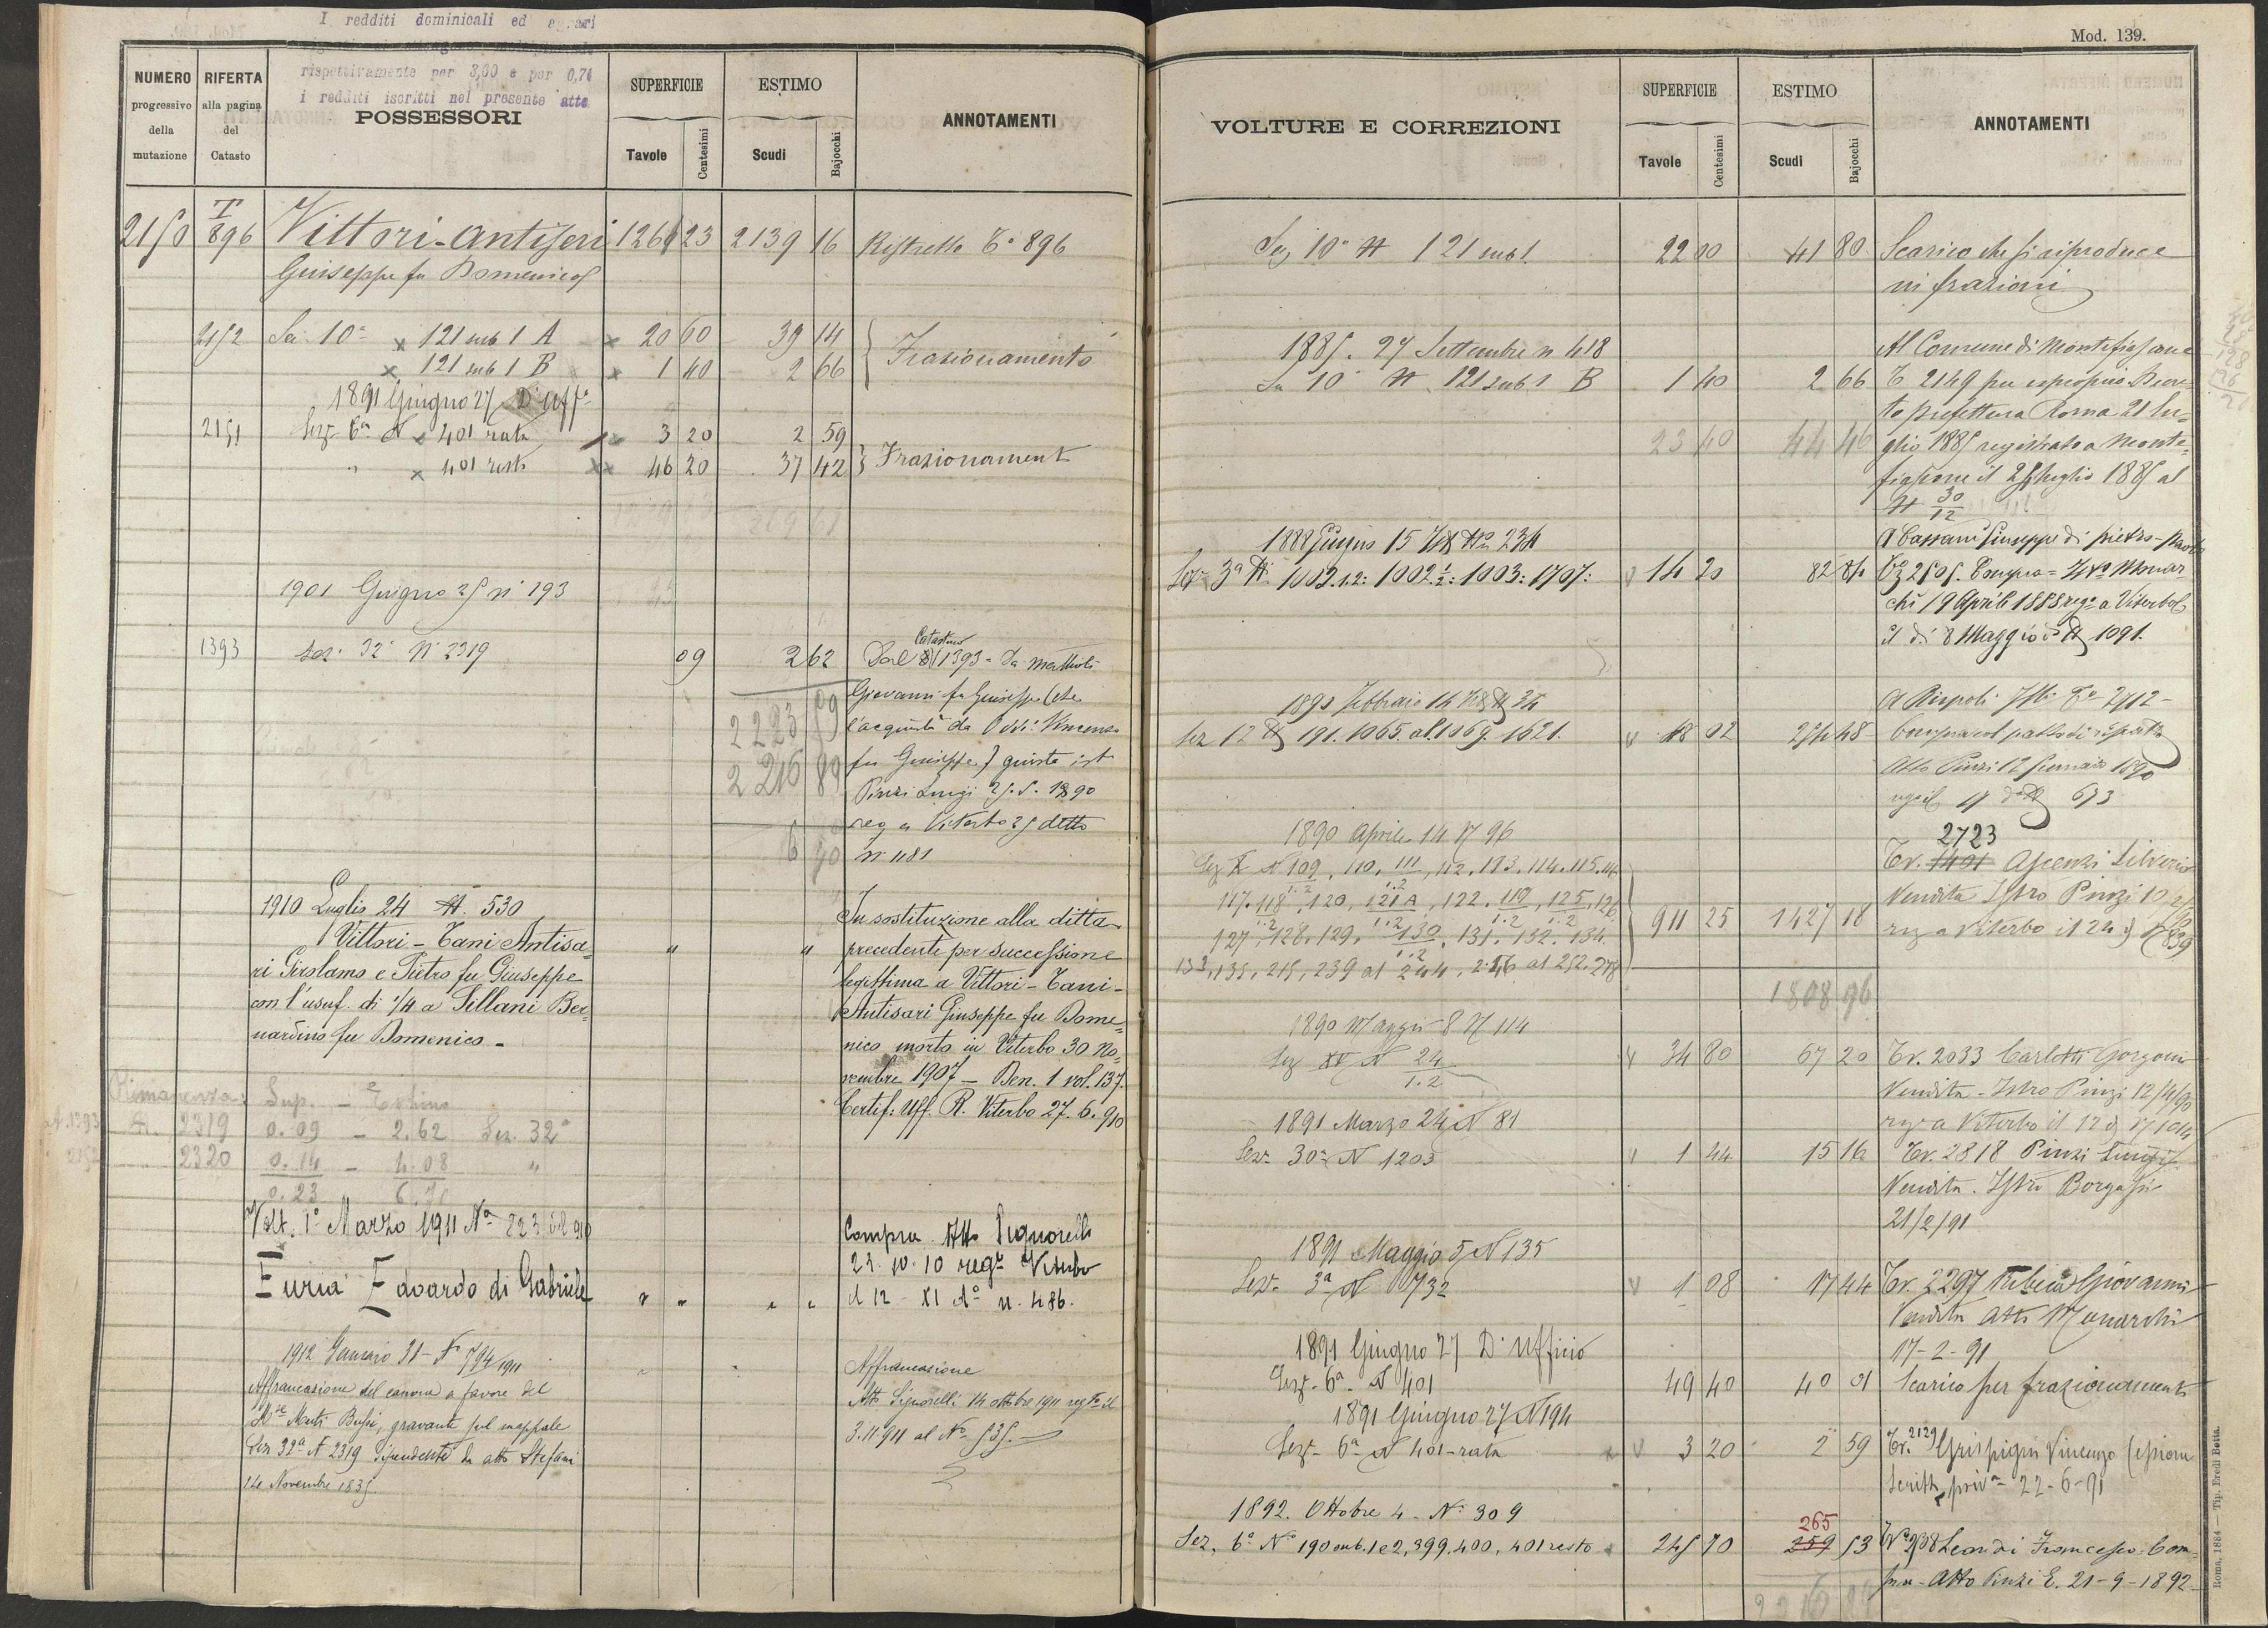 I redditi dominicali ed agrari
rispettivamente per 3,60 e per 0,71
i redditi iscritti nel presente atto
NUMERO progressivo della mutazione
RIFERTA alla pagina del Catasto
POSSESSORI
SUPERFICIE
Tavole Centesimi
ESTIMO
Scudi Bajocchi
ANNOTAMENTI
2150 T 896 Vittori-Antiseri 1261 23 2139 16 Ristretto T. 896
Giuseppe fu Domenico
2152 Sez. 10ª × 121 sub 1 A × 20 60 39 14
× 121 sub 1 B × 1 40 2 66 Frazionamento
1891 Giugno 27 D'Uff.
2151 Sez. 6ª N 401 rata 3 20 2 59
" × 401 resto 46 20 37 42 Frazionament
1901 Giugno 25 n. 193
1393 Sez. 32ª N. 2319 09 2 62 Dal Catastino 1393 - Da Mattioli
Giovanni fu Giuseppe (che
2223 l'acquistò da Oddi Vincenzo
2216 89 fu Giuseppe) giusta ist.
Pinzi Luigi 25.5.1890
reg a Viterbo 25 detto
6 70 n. 1181
1910 Luglio 24 N. 530
Vittori - Tani Antisa=
ri Girolamo e Pietro fu Giuseppe
con l'usuf. di 1/4 a Sillani Ber=
nardino fu Domenico -
" "
In sostituzione alla ditta
precedente per successione
legittima a Vittori - Tani -
Antisari Giuseppe fu Dome=
nico morto in Viterbo 30 No=
vembre 1907 - Den. 1 vol. 137.
Certif: Uff. R. Viterbo 27.6.910
Rimanenza: Sup. - Estimo
N. 2319 0.09 - 2.62 Sez. 32ª
2320 0.14 - 4.08 "
0.23 6.70
Volt. 1º Marzo 1911 Nº 223 del 910
Euria Edoardo di Gabriele " " " "
Compra Atto Signorelli
23.10.10 regº Viterbo
il 12 - XI dº n. 486.
1912 Gennaio 31 - Nº 794/1911
Affrancazione del canone a favore del
Mse Monti Bussi, gravante sul mappale
Sez 32ª N 2319 dipendente da atto Stefani
14 Novembre 1835.
Affrancazione
Atto Signorelli 14 ottobre 1911 regto il
3.11.911 al Nº 535.
Mod. 139.
VOLTURE E CORREZIONI
SUPERFICIE
Tavole Centesimi
ESTIMO
Scudi Bajocchi
ANNOTAMENTI
Sez 10ª N 121 sub 1 22 00 41 80 Scarico che si riproduce
in frazioni
1885. 27 Settembre n 418 Al Comune di Montefiascone
Sez 10ª N. 121 sub 1 B 1 40 2 66 T. 2149 per esproprio Decre=
to prefettura Roma 21 Lu=
23 40 44 46 glio 1885 registrato a Monte=
fiascone il 25 luglio 1885 al
N 30/12
1888 Giugno 15 N. 234
Sez. 3ª N. 1002.1.2: 1002 1/2: 1003: 1707: 14 20 82 84
Compra = Monar=
chi 19 Aprile 1888 reg. a Viterbo
il dì 8 Maggio dº N 1091.
1890 Febbraio 14 N. 34
Sez 12 N 191. 1065. al 1069. 1621. 48 02 274 48
Compra col patto di
Atto Pinzi 12 Gennaio 1890
673
1890 Aprile 14 N 96
Sez X N 109, 110, 111, 112, 113, 114, 115, 116
117. 118, 120, 121 A, 122, 119, 125, 126
127, 128, 129, 130, 131, 132, 134
133, 135, 215, 239 al 244, 246 al 252. 278
911 25 1427 18
2723
Tr. 1401 Ascenzi Silverio
Vendita Istro Pinzi 10
reg a Viterbo il 24 N 839
1808 96
1890 Maggio 8 N 114
Sez XV N 24/1.2 34 80 67 20 Tr. 2033 Carletti Gorgonio
Vendita - Istro Pinzi 12/4/90
reg a Viterbo il 17 N 1014
1891 Marzo 24 N 81
Sez. 30ª N 1203 1 44 15 16 Tr. 2818 Pinzi Luigi
Vendita. Istro Borgassi
21/2/91
1891 Maggio 5 N 135
Sez. 3ª N 1732 1 08 17 44 Tr. 2297 Giovanni
Vendita atto Monarchi
17-2-91
1891 Giugno 27 D'Ufficio
Sez. 6ª N 401 49 40 40 01 Scarico per frazionamento
1891 Giugno 27 N 194
Sez. 6ª N 401-rata 3 20 2 59 Tr. 2129 Grispigni Vincenzo Cessione
Scritta privª 22-6-91
1892. Ottobre 4 - Nº 309
Sez. 6ª Nº 190 sub. 1 e 2, 399, 400, 401 resto 245 70 265 259 53
Leondi Francesco. Com=
pra - Atto Pinzi E. 21-9-1892
Roma, 1884 — Tip. Eredi Botta.